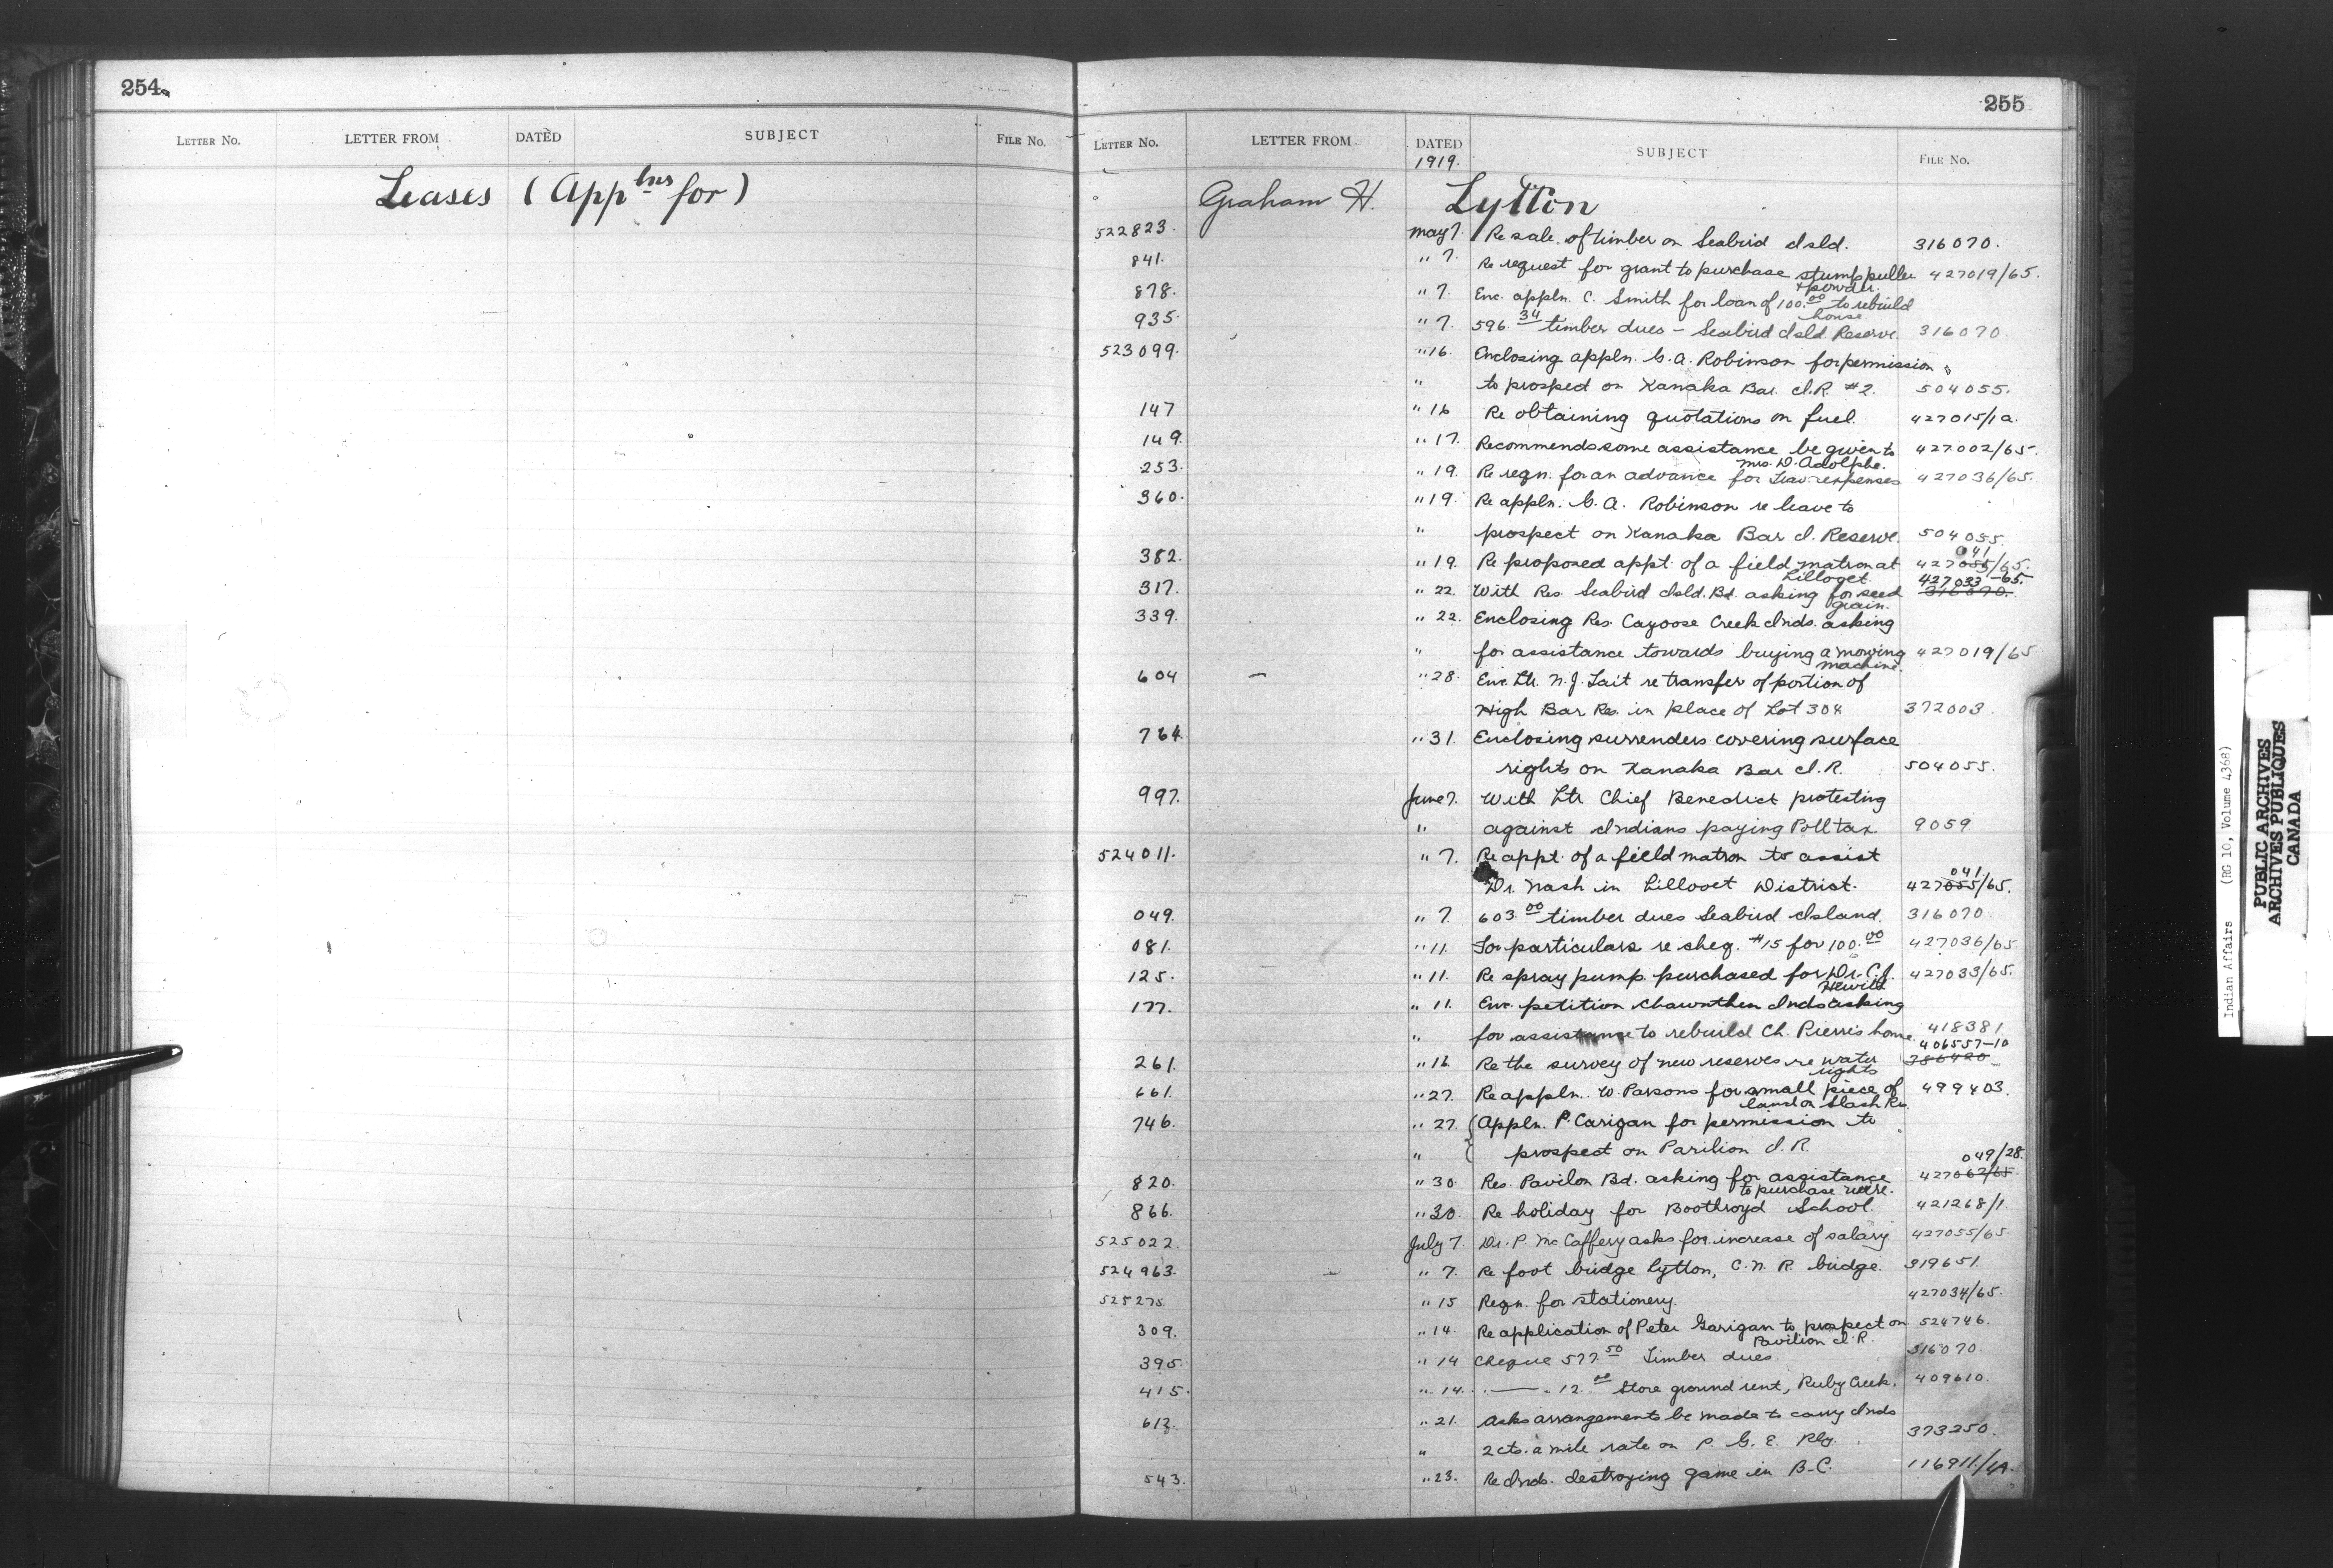 254
LETTER No. LETTER FROM DATED SUBJECT FILE No.
Leases (Applns for)
255
LETTER No. LETTER FROM DATED SUBJECT FILE No.
1919.
Graham H. Lytton
522823. May 7. Re sale of timber on Seabird Isld. 316070.
841. " 7. Re request for grant to purchase stump puller 427019/65.
& powder.
878. " 7. Enc. appln. C. Smith for loan of 100.00 to rebuild
house
935. " 7. 596.34 timber dues - Seabird Isld Reserve. 316070
523099. " 16. Enclosing appln. G. A. Robinson for permission
" to prospect on Kanaka Bar I.R. #2. 504055.
147 " 16 Re obtaining quotations on fuel. 427015/1a.
149. " 17. Recommends some assistance be given to 427002/65.
Mrs. D. Adolphe.
253. " 19. Re reqn. for an advance for Trav expenses 427036/65.
360. " 19. Re appln. G. A. Robinson re leave to
" prospect on Kanaka Bar I. Reserve. 504055.
041
382. " 19. Re proposed appt. of a field matron at 427055/65.
Lilloget. 427033-65.
317. " 22. With Res. Seabird Isld. Bd. asking for seed 316070.
grain.
339. " 22. Enclosing Res. Cayoose Creek Inds. asking
" for assistance towards buying a mowing 427019/65
machine.
604 " 28. Enc. Ltr. N. J. Tait re transfer of portion of
High Bar Res. in place of Lot 308 372003.
764. " 31. Enclosing surrenders covering surface
rights on Kanaka Bar I.R. 504055.
997. June 7. With Ltr Chief Benedict protesting
" against Indians paying Poll tax. 9059
524011. " 7. Re appt. of a field matron to assist
041
Dr. Nash in Lillooet District. 427055/65.
049. " 7. 603.00 timber dues Seabird Island. 316070
081. " 11. For particulars re cheq. #15 for 100.00 427036/65
125. " 11. Re spray pump purchased for Dr. C. J. 427033/65.
Hewitt
177. " 11. Enc. petition Chawuthen Inds asking
" for assistance to rebuild Ch. Pierre's home. 418381
406557-10
261. " 16. Re the survey of new reserves re water 386420
rights
661. " 27. Re appln. W. Parsons for small piece of 499403.
land on Slash Res.
746. " 27. Appln. P. Carigan for permission to
" prospect on Parilion I.R.
049/28.
820. " 30. Res. Pavilon Bd. asking for assistance 427062/65.
to purchase wire.
866. " 30. Re holiday for Boothroyd School. 421268/1.
525022. July 7. Dr. P. McCaffery asks for increase of salary 427055/65.
524963. " 7. Re foot bridge Lytton, C.N.R. bridge. 319651.
525275 " 15 Reqn. for stationery. 427034/65.
309. " 14. Re application of Peter Garigan to prospect on 524746.
Pavilion I.R.
395. " 14 Cheque 577.50 Timber dues. 316070
415. " 14. " — " 12.00 Store ground rent, Ruby Creek. 409610.
612. " 21. Asks arrangements be made to carry Inds
" 2 cts. a mile rate on P. G. E. Rly. 373250.
543. " 23. Re Inds. destroying game in B.C. 116911/4A.
Indian Affairs (RG 10, Volume 4368)
PUBLIC ARCHIVES
ARCHIVES PUBLIQUES
CANADA